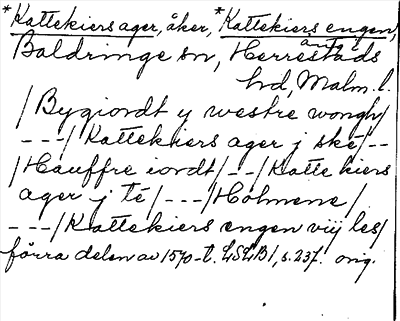 *Kattekiers ager, åker, *Kattekiers engen,
äng i
Baldringe sn, Herrestads
hd, Malm. l.
/Bygiordt y westre wongh/
---/Kattekiers ager j ské/--
/Hauffre iordt/--/Kattekiers
ager j té/---/Holmene/
---/Kattekiers engen viij les/
förra delen av 1570-t. LSLB1, s. 237. orig.